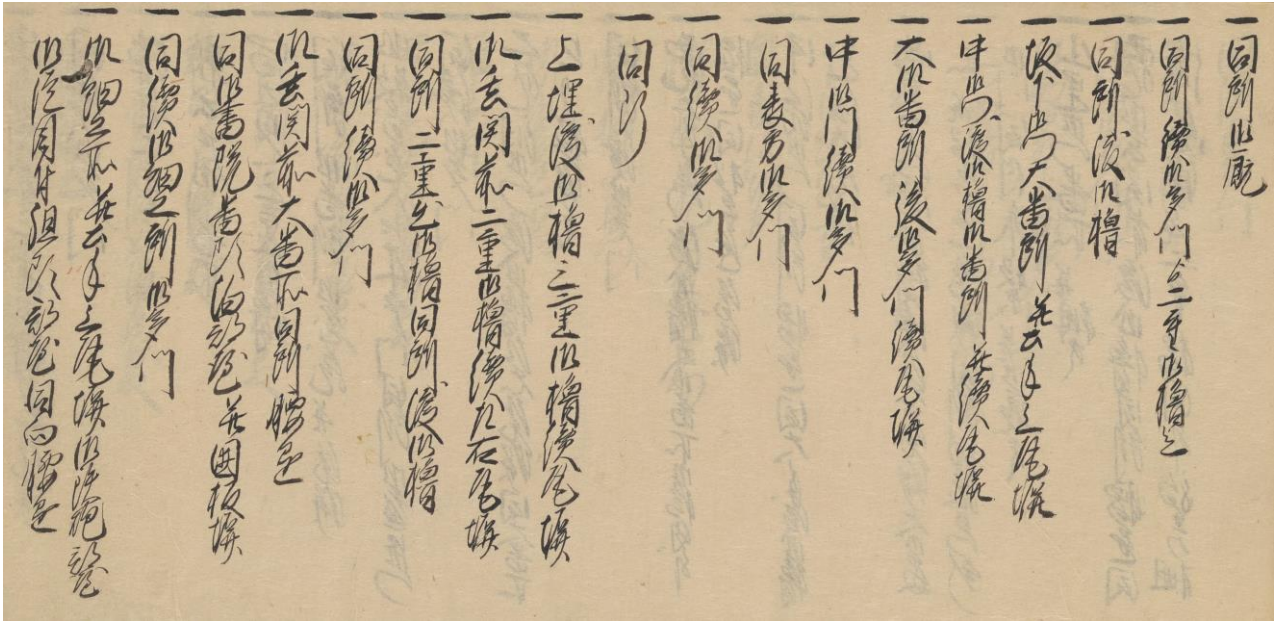 一 同所御厩
一 同所続御多門上二重御櫓迄
一 同所渡御櫓
一 坂下御門大番所并左手之瓦塀
一 中御門渡御櫓御番所并続瓦塀
一 大御番所後御多門続瓦塀
一 中御門続御多門
一 同表方御多門
一 同続御多門
一 同断
一 上埋渡御櫓二三重御櫓続瓦塀
一 御玄関前二重御櫓続左右瓦塀
一 同所二重御櫓同所渡御櫓
一 同所続御多門
一 御玄関前大番所同所腰掛
一 同御書院番頭泊部屋并囲板塀
一 同続御細工所御多門
一 御細工所并左手之瓦塀御鉄炮部屋
御徒目付組頭部屋同向腰掛